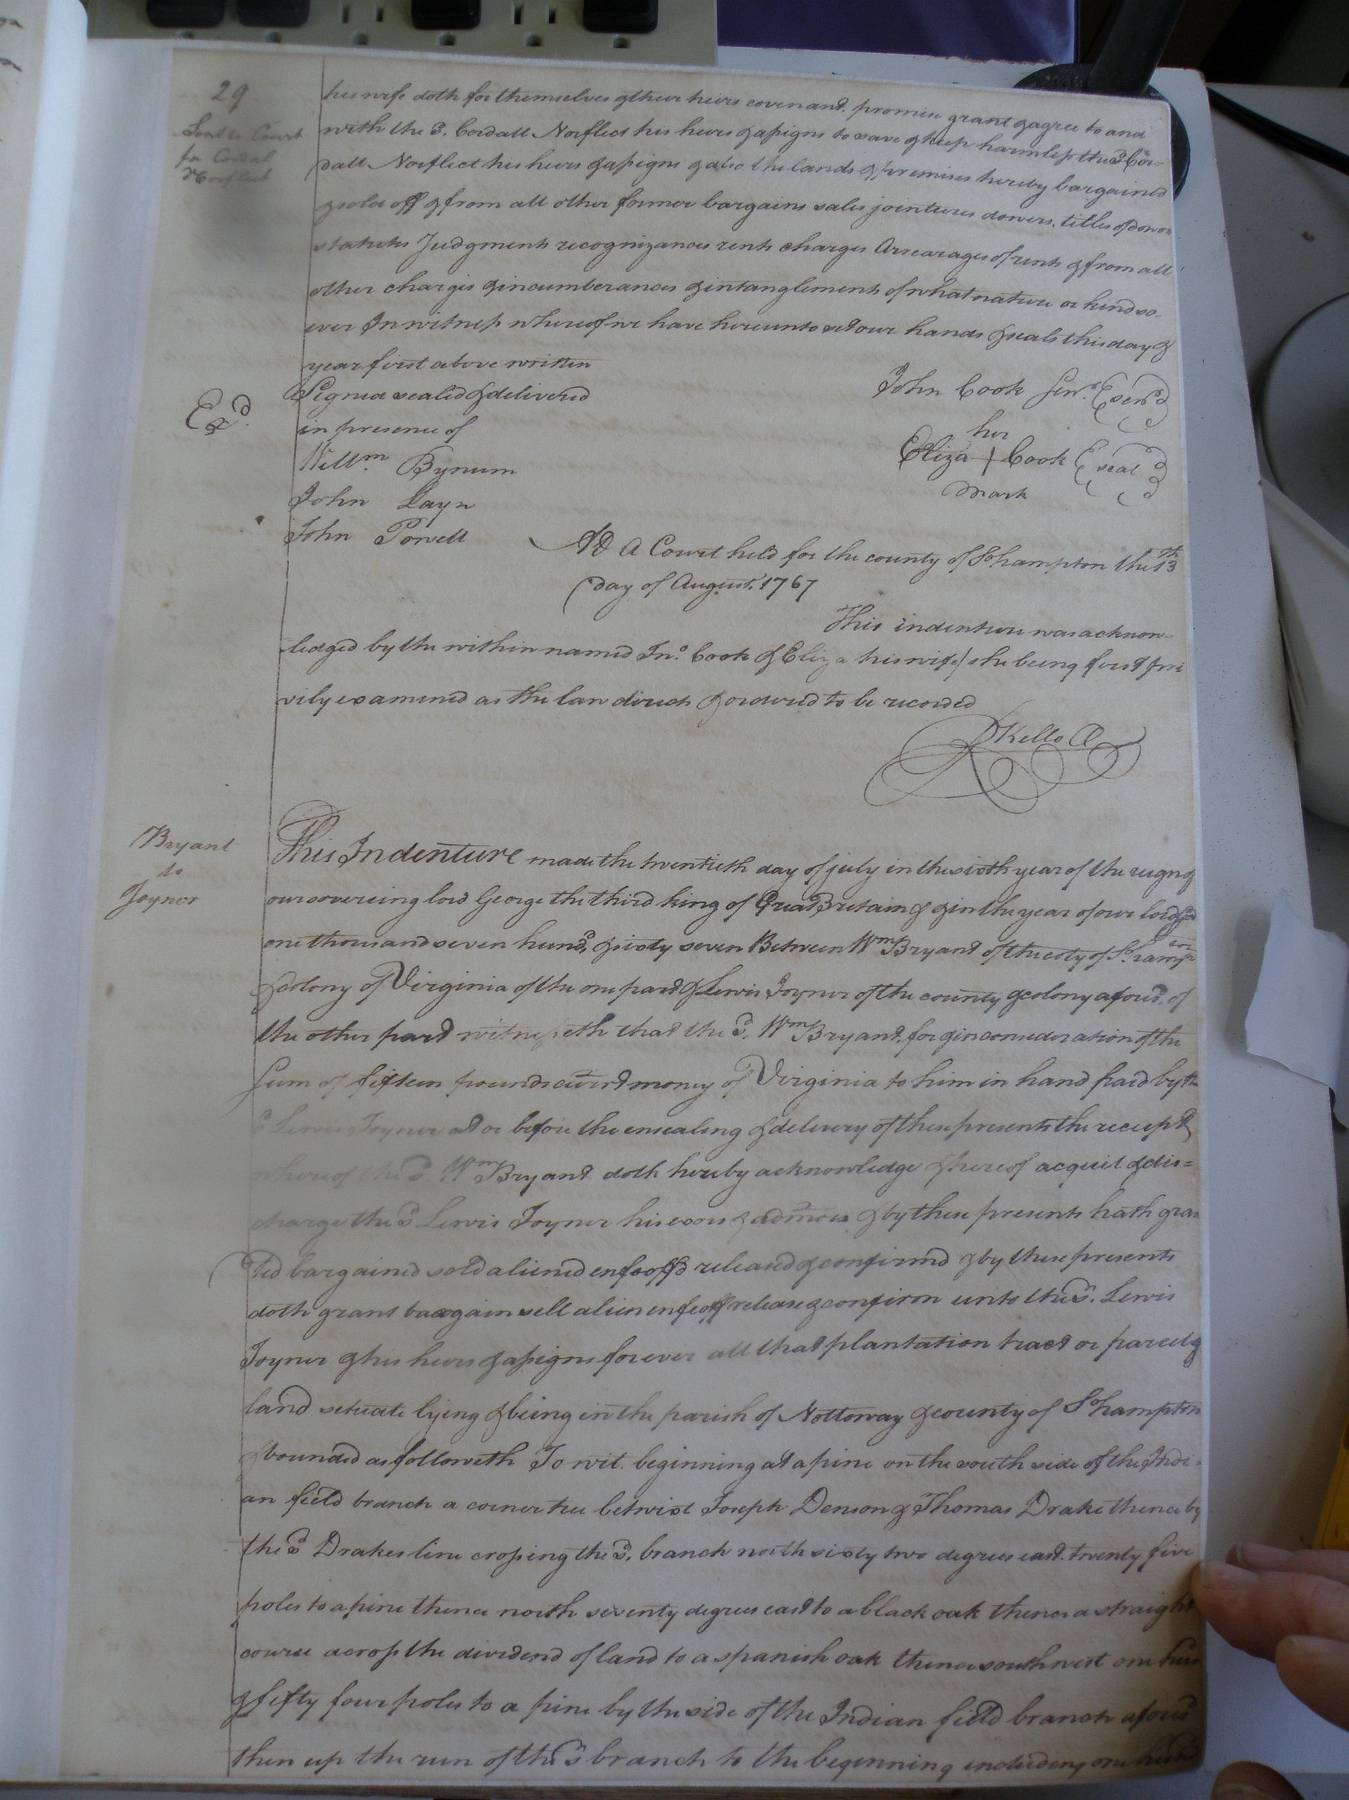 29
Sent to Court
for Cordal
Norfleet
his wife doth for themselves & their heirs covenant. promise grant & agree to and
with the sd. Cordall Norfleet his heirs & assigns to save & keep harmless the sd Cor-
dall Norfleet his heirs & assigns & also the lands & premises hereby bargained
& sold off & from all other former bargains sales jointures dowers. titles of dower
statutes Judgments recognizances rents charges Arrearages of rents & from all
other charges & incumberances & intanglements of what nature or kind so.
ever In witness whereof we have hereunto set our hands & seals this day &
year first above written
Signed sealed & delivered
in presence of
Willm Bynum
John Layn
John Powell
Exd.
John Cook Senr. seal
her
Eliza Cook seal
mark
At A Court held for the county of So.hampton the 13th
day of August. 1767
This indenture was acknow-
ledged by the within named Jno. Cook & Eliza his wife / she being first pri
vily examined as the law directs & ordered to be recorded
RKello
Bryant
to
Joyner
This Indenture made the twentieth day of july in the sixth year of the reign of
our sovereing lord George the third king of Great Britain & & in the year of our lord god
one thousand seven hund. & sixty seven Between Wm Bryant of the coty of So.hampton
& colony of Virginia of the one part & Lewis Joyner of the county & colony aforsd. of
the other part witnesseth that the sd. Wm Bryant, for & in consideration of the
sum of fifteen pounds currt money of Virginia to him in hand paid by the
sd Lewis Joyner at or before the ensealing & delivery of these presents the receipt
whereof the sd Wm Bryant doth hereby acknowledge & thereof acquit & dis=
charge the sd Lewis Joyner his exors & admors & by these presents hath gran
ted bargained sold aliened enfeoffd released & confirmd & by these presents
doth grant bargain sell alien enfeoff release & confirm unto the sd. Lewis
Joyner & his heirs & assigns forever all that plantation tract or parcel of
land setuate lying & being in the parish of Nottoway & county of So.hampton
& bounded as followeth To wit. beginning at a pine on the south side of the Indi-
an field branch a corner tree betwixt Joseph Denson & Thomas Drake thence by
the sd Drakes line crossing the sd. branch north sixty two degrees east. twenty five
poles to a pine thence north seventy degrees east to a black oak thence a straight
course across the dividend of land to a spanish oak thence southwest one hun
& fifty four poles to a pine by the side of the Indian field branch aforsd
then up the run of the sd branch to the beginning including one hund